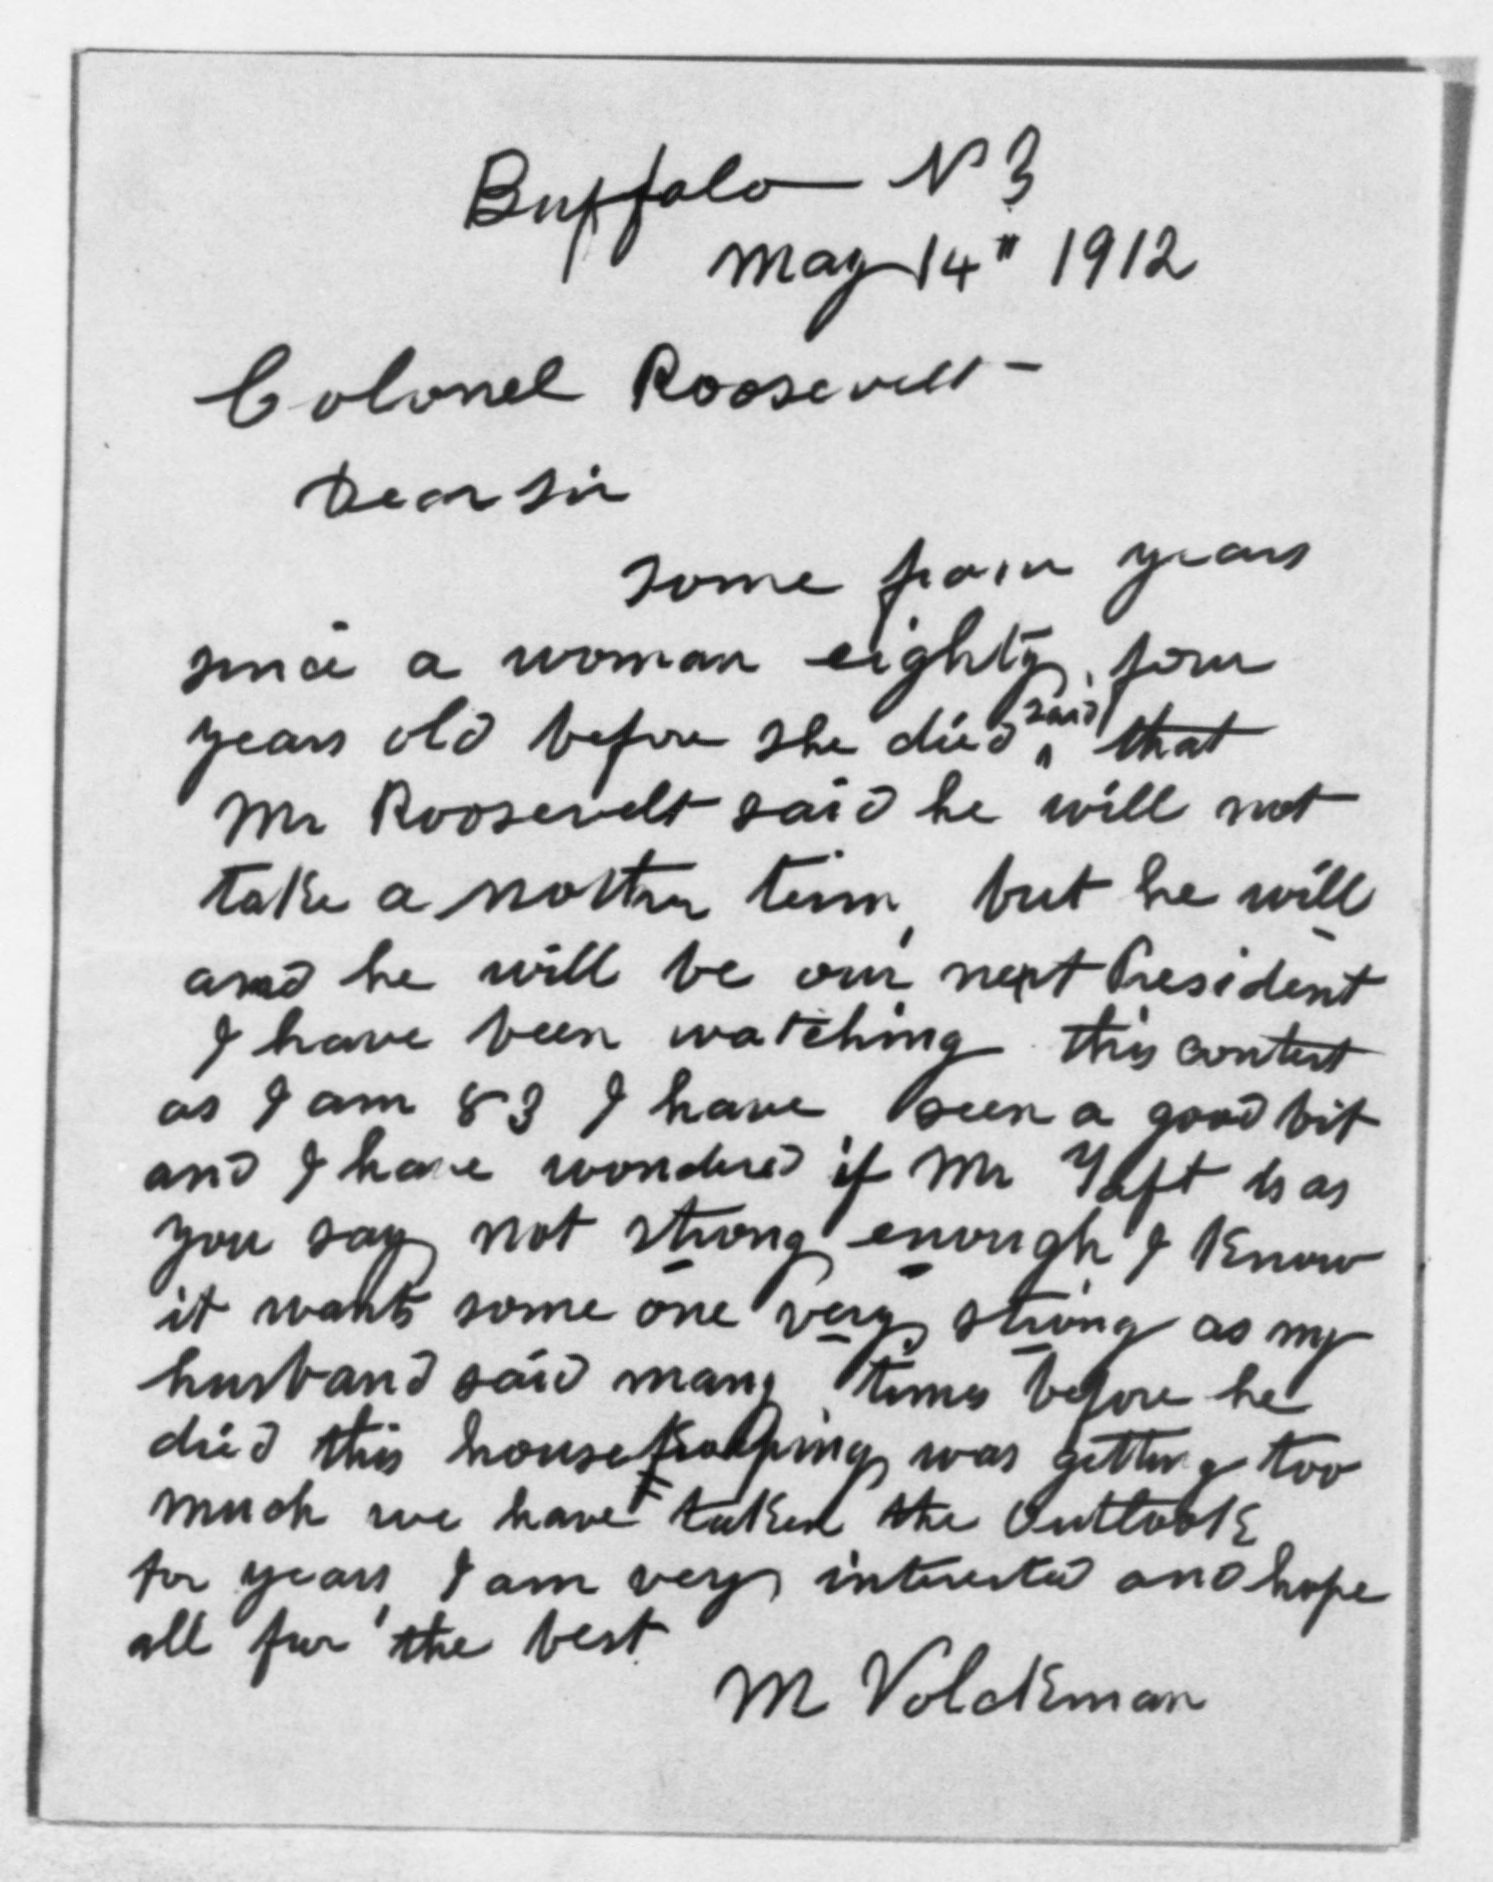 Buffalo N Y
May 14" 1912
Colonel Roosevelt -
Dear Sir
Some four years
since a woman eighty four
years old before she died said that
Mr Roosevelt said he will not
take a nother term, but he will
and he will be our next President
I have been watching this contest
as I am 83 I have seen a good bit
and I have wondered if Mr Taft is as
you say not strong enough I know
it wants some one very strong as my
husband said many times before he
died this house keeping was getting too
much we have taken the Outlook
for years, I am very interested and hope
all for the best
M Volckman